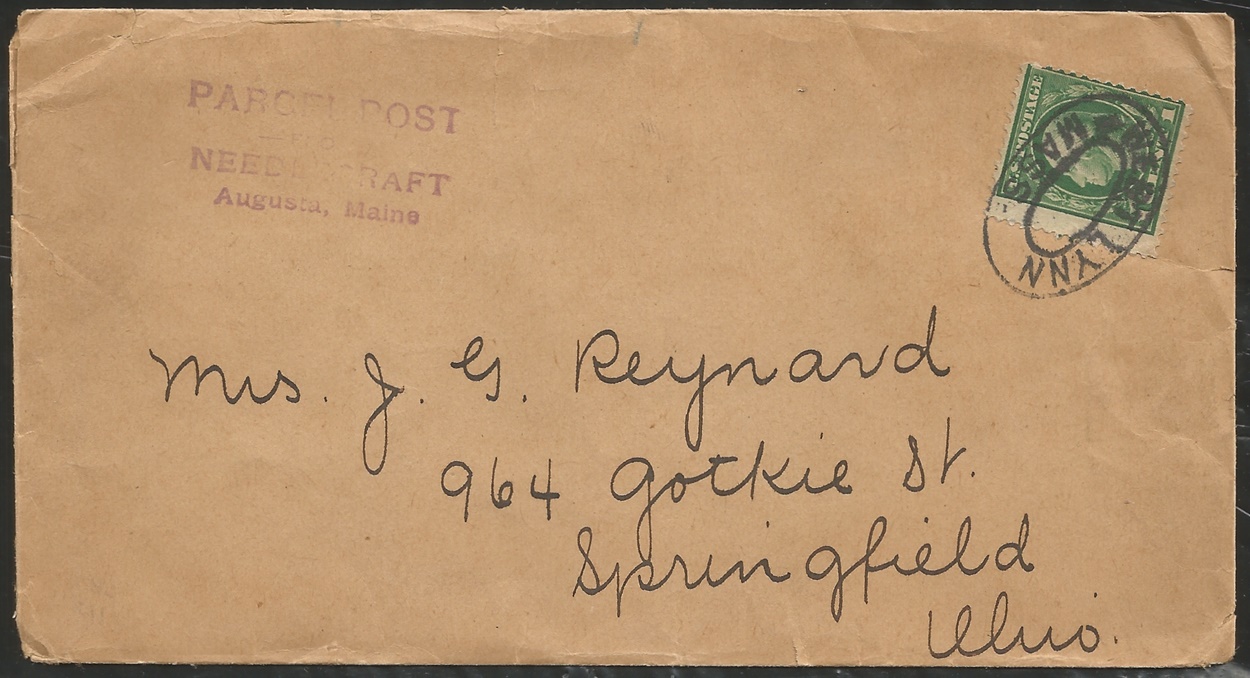 PARCEL POST
NEEDLECRAFT
Augusta, Maine
POSTAGE
LYNN
MASS
Mrs. J. G. Reynard
964 Gotkie St.
Springfield
Ohio.